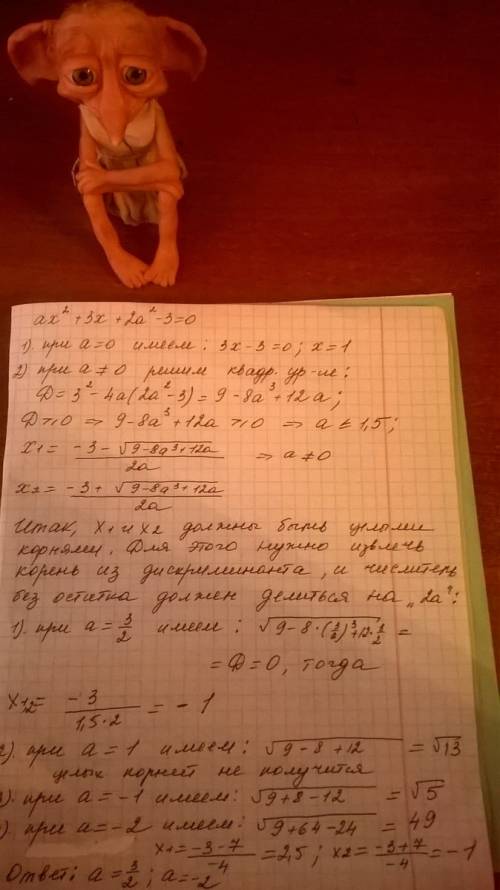 ax² + 3x + 2a² - 3 = 0
1). при a = 0 имеем : 3x - 3 = 0 ; x = 1
2) при a ≠ 0 решим квадр. ур-ие :
Д = 3² - 4a(2a² - 3) = 9 - 8a³ + 12a ;
Д ≥ 0 ⇒ 9 - 8a³ + 12a ≥ 0 ⇒ a ≤ 1,5 ;
x₁ = (-3 - √(9 - 8a³ + 12a)) / 2a ⇒ a ≠ 0
x₂ = (-3 + √(9 - 8a³ + 12a)) / 2a
Итак, x₁ и x₂ должны быть целыми
корнями. Для этого нужно извлечь
корень из дискриминанта, и числитель
без остатка должен делиться на „2a“:
1). при a = 3/2 имеем : √(9 - 8·(3/2)³ + 12·3/2) =
= Д = 0, тогда
x₁,₂ = -3 / (1,5·2) = -1
2). при a = 1 имеем : √(9 - 8 + 12) = √13
целых корней не получится
). при a = -1 имеем : √(9 + 8 - 12) = √5
). при a = -2 имеем : √(9 + 64 - 24) = 49
x₁ = (-3 - 7) / -4 = 2,5 ; x₂ = (-3 + 7) / -4 = -1
Ответ : a = 3/2 ; a = -2